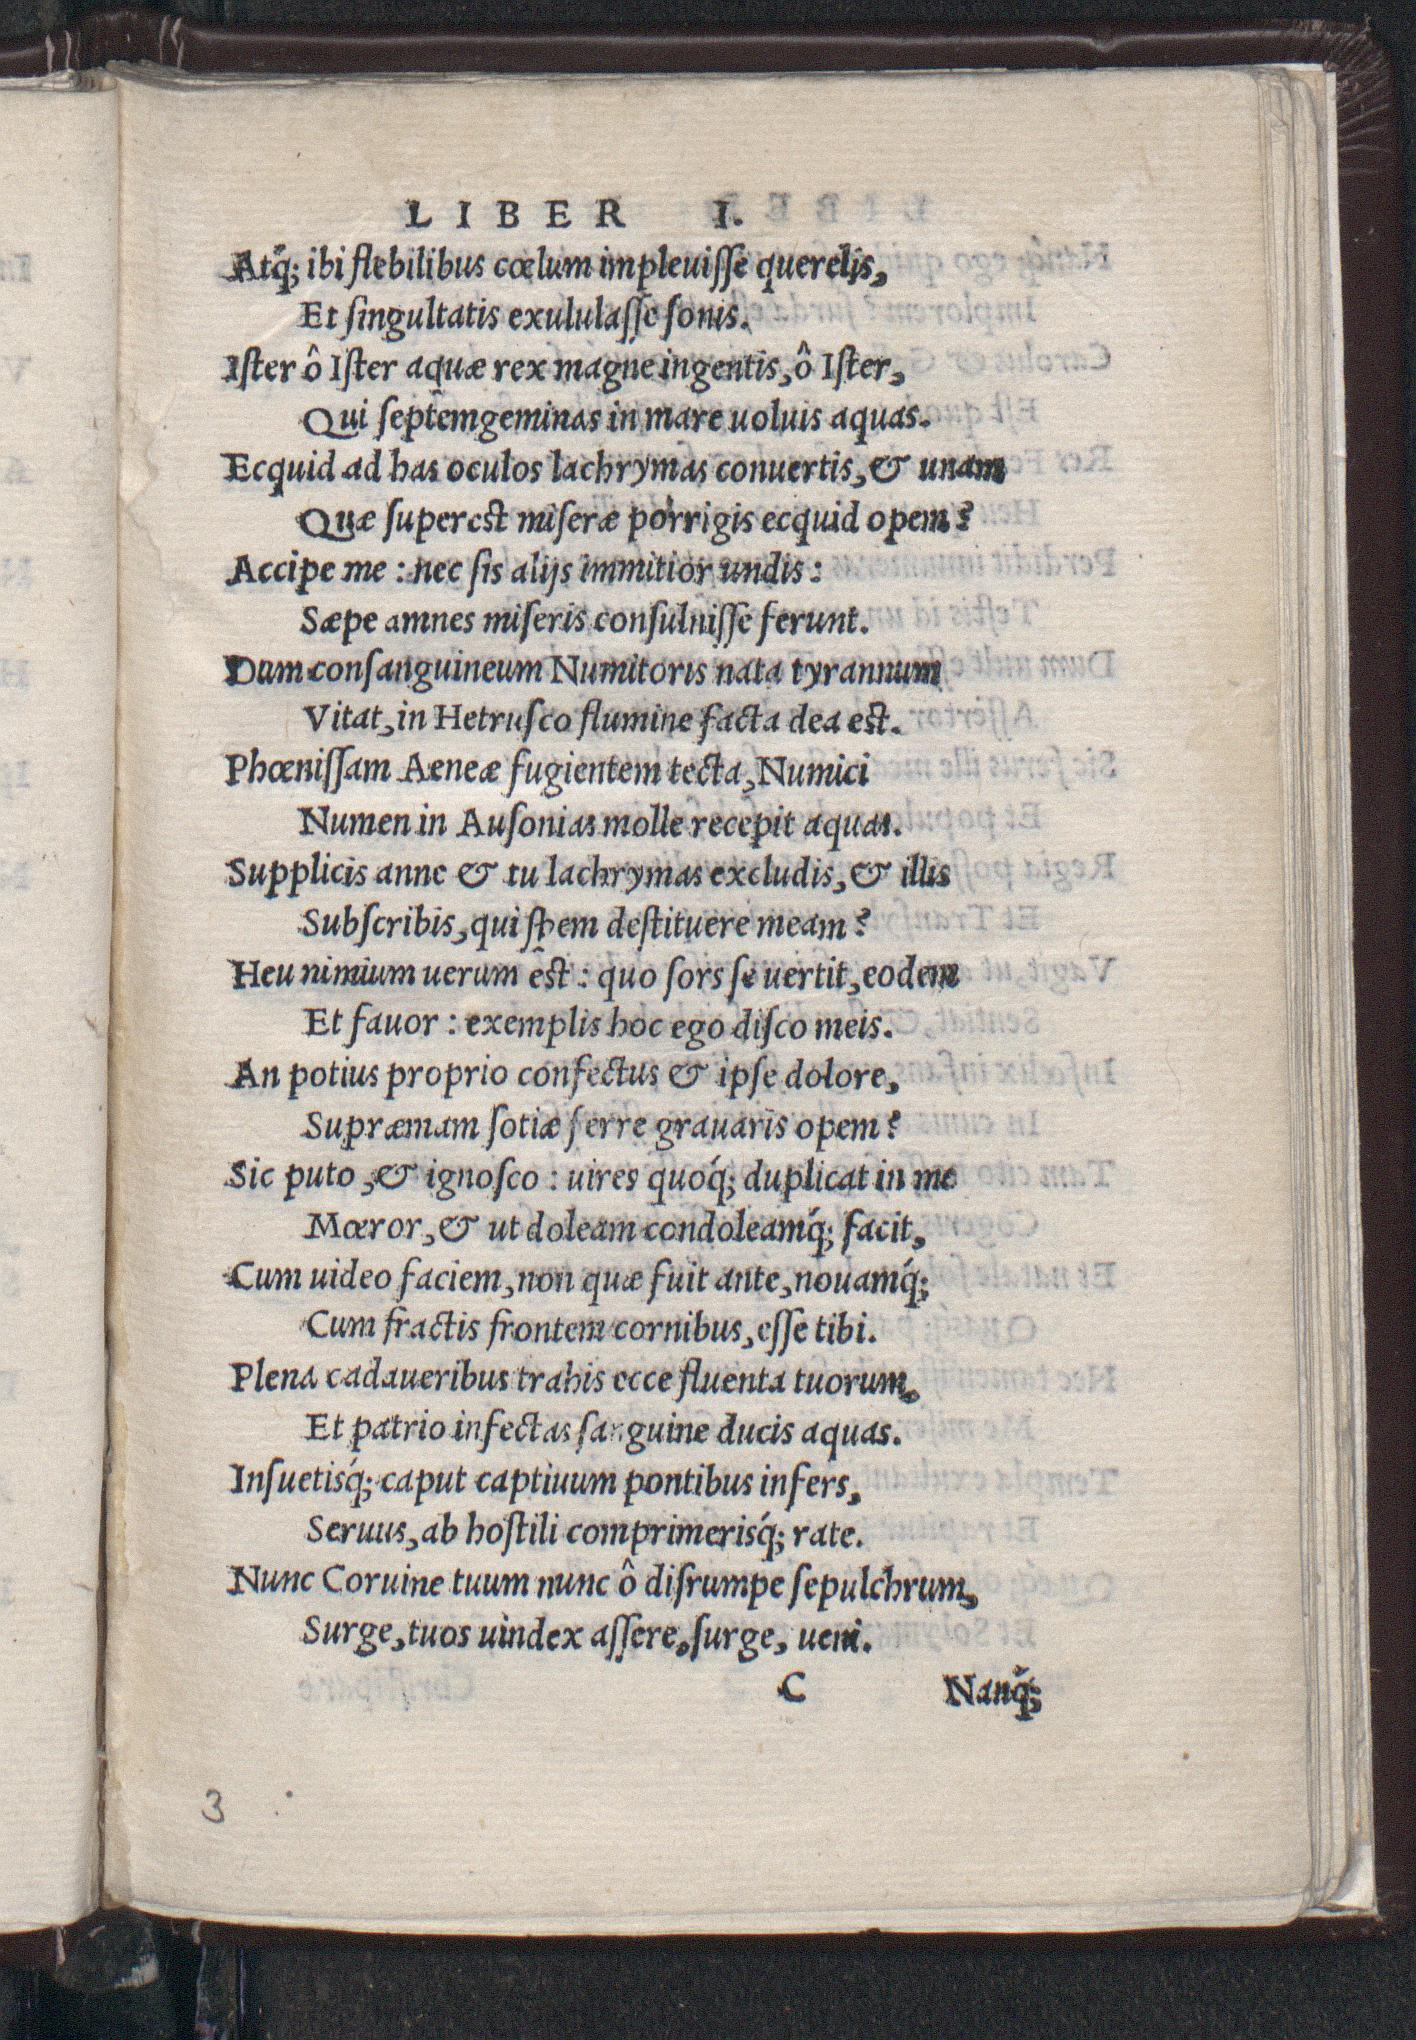 LIBER I.
Atq́; ibi flebilibus cœlum impleuiſſe querelis,
Et ſingultatis exululaſſe ſonis.
Iſter ô Iſter aquæ rex magne ingentis, ô Iſter,
Qui ſeptemgeminas in mare uoluis aquas.
Ecquid ad has oculos lachrymas conuertis, & unam
Quæ ſupereſt miſeræ porrigis ecquid opem?
Accipe me : nec ſis alijs immitior undis :
Sæpe amnes miſeris conſuluiſſe ferunt.
Dum conſanguineum Numitoris nata tyrannum
Vitat, in Hetruſco flumine facta dea eſt.
Phœniſſam Aeneæ fugientem tecta, Numici
Numen in Auſonias molle recepit aquas.
Supplicis anne & tu lachrymas excludis, & illis
Subſcribis, qui ſpem deſtituere meam?
Heu nimium uerum eſt : quo ſors ſe uertit, eodem
Et fauor : exemplis hoc ego diſco meis.
An potius proprio confectus & ipſe dolore,
Supræmam ſotiæ ferre grauaris opem?
Sic puto, & ignoſco : uires quoq́; duplicat in me
Mœror, & ut doleam condoleamq́; facit,
Cum uideo faciem, non quæ fuit ante, nouamq́;
Cum fractis frontem cornibus, eſſe tibi.
Plena cadaueribus trahis ecce fluenta tuorum,
Et patrio infectas ſanguine ducis aquas.
Inſuetisq́; caput captiuum pontibus infers,
Seruus, ab hoſtili comprimerisq́; rate.
Nunc Coruine tuum nunc ô diſrumpe ſepulchrum,
Surge, tuos uindex aſſere, ſurge, ueni.
C Nanq́;
3